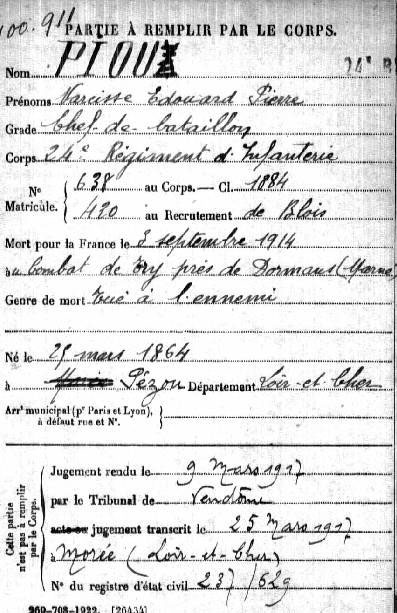 100.911 PARTIE À REMPLIR PAR LE CORPS.
Nom PIOUX
24e
Prénoms Narcisse Edouard Pierre
Grade Chef de bataillon
Corps 24e Régiment d'Infanterie
No Matricule. { 638 au Corps. — Cl. 1884
420 au Recrutement de Blois
Mort pour la France le 3 septembre 1914
à au Combat de Try près de Dormans (Marne)
Genre de mort Tué à l'ennemi
Né le 29 mars 1864
à Pézou Département Loir-et-Cher
Arrt municipal (pr Paris et Lyon), à défaut rue et No. }
Cette partie n'est pas à remplir par le Corps.
Jugement rendu le 9 Mars 1917
par le Tribunal de Vendôme
acte ou jugement transcrit le 25 Mars 1917
à Morée (Loir-et-Cher)
No du registre d'état civil 237/629
269-708-1922. [26434]